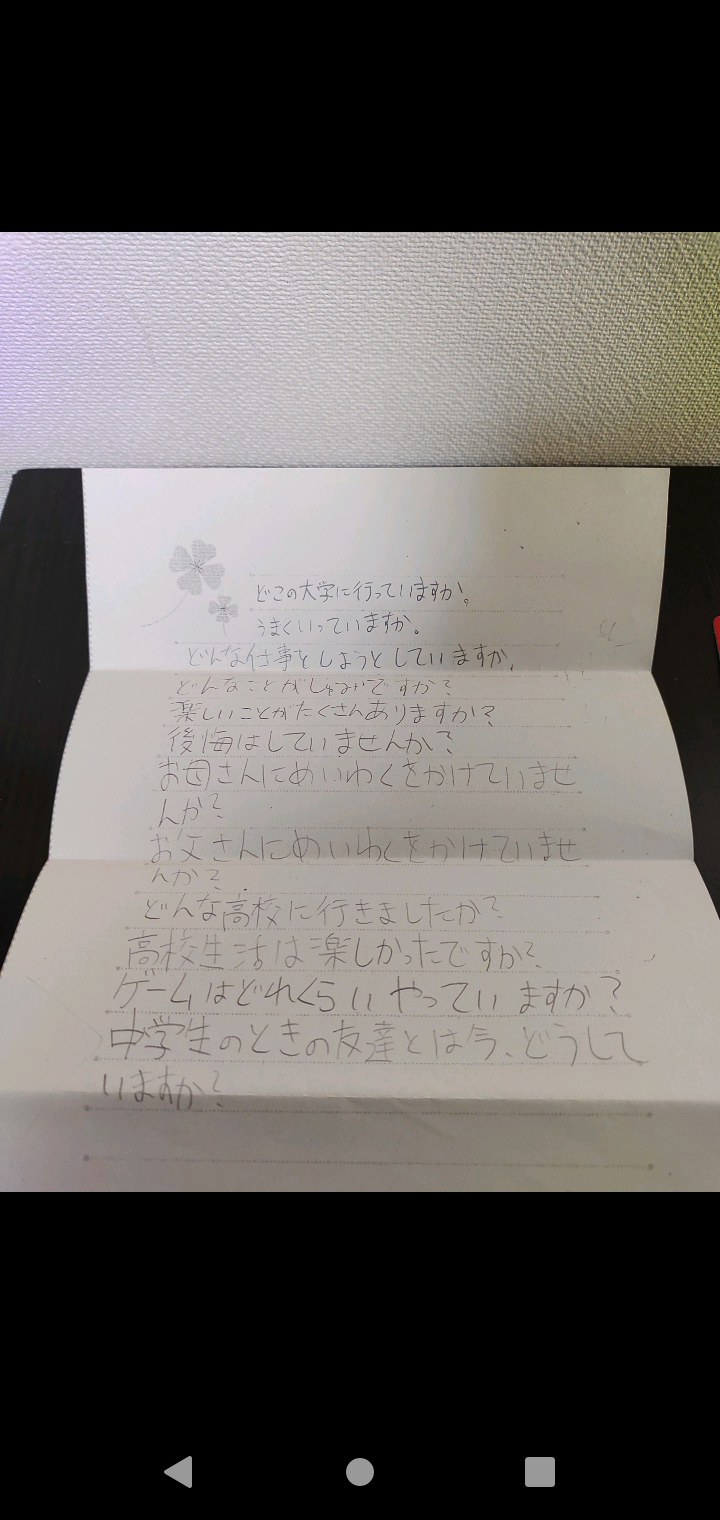 どこの大学に行っていますか。
うまくいっていますか。
どんな仕事をしようとしていますか。
どんなことがしゅみですか?
楽しいことがたくさんありますか?
後悔はしていませんか?
お母さんにめいわくをかけていませ
んか?
お父さんにめいわくをかけていませ
んか?
どんな高校に行きましたか?
高校生活は楽しかったですか?
ゲームはどれくらいやっていますか?
中学生のときの友達とは今、どうして
いますか?